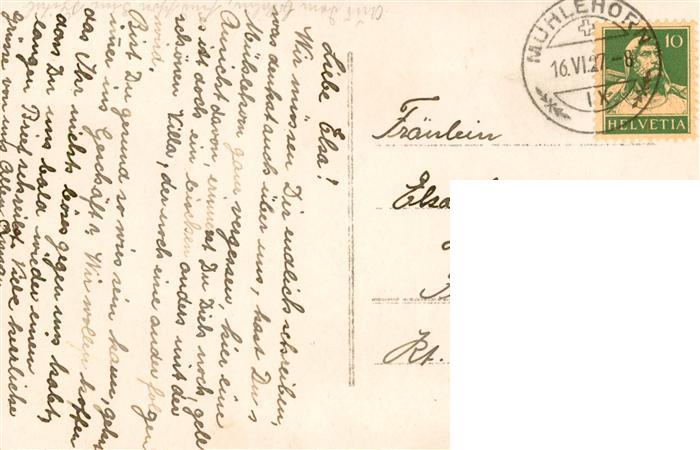 Liebe Elsa!
Wir müssen Dir endlich schreiben,
was denkst auch über uns, hast Du s
Mühlehorn ganz vergessen, hier eine
Ansicht davon, erinnerst Du Dich noch, gele
es ist doch ein bischen anders mit der
schönen Villa, der noch eine ander folgen
wird.
Bist Du gesund so wies sein kann, gehst
immer ins Geschäft? Wir wollen hoffen
das Ihr nichts böses gegen uns habt,
dass Du uns bald wieder einen
langen Brief schreibst Viele herzliche
Grüsse von uns Allen
Fräulein
Elsa
Kt.
MÜHLEHORN
16.VI.27-8
IX
10
HELVETIA